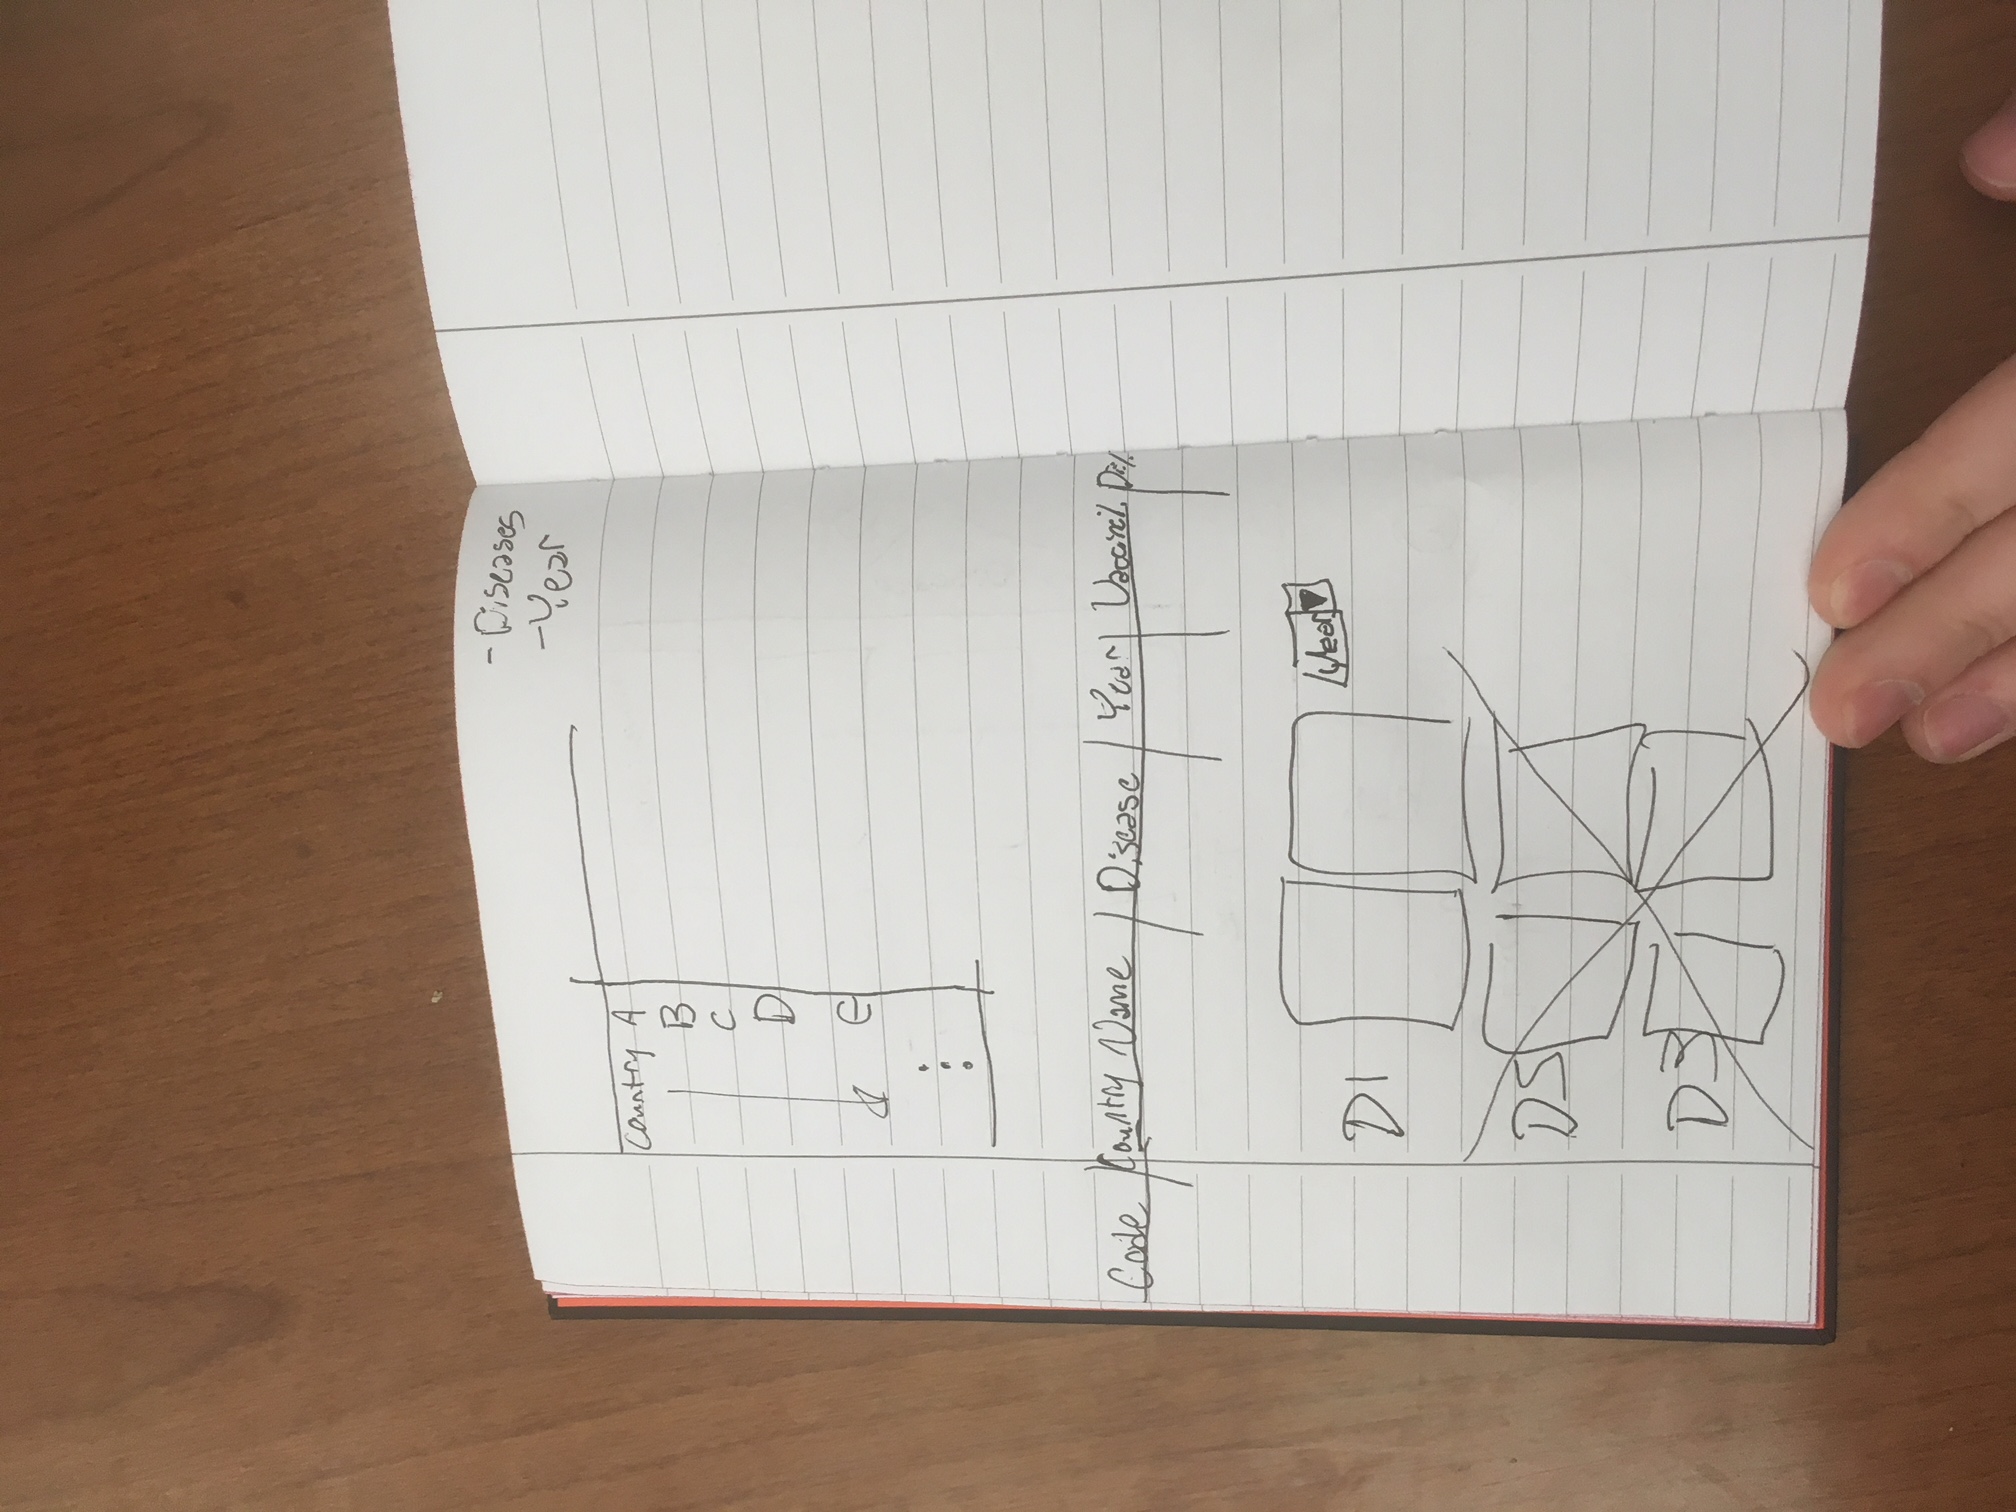 - Diseases
- Year
Country A
B
C
D
E
Code Country Name Disease Year Vaccine% Di%
Year
D1
D5
D3